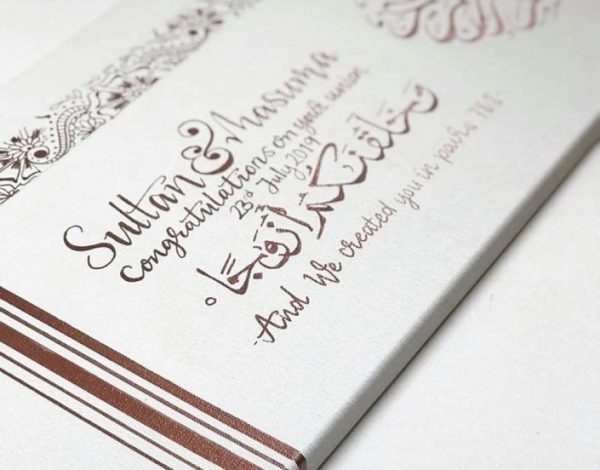 Sultan & Masuma
Congratulations on your union
23rd July 2019
وَخَلَقْنَٰكُمْ أَزْوَٰجًا
-And We created you in pairs 78:8-